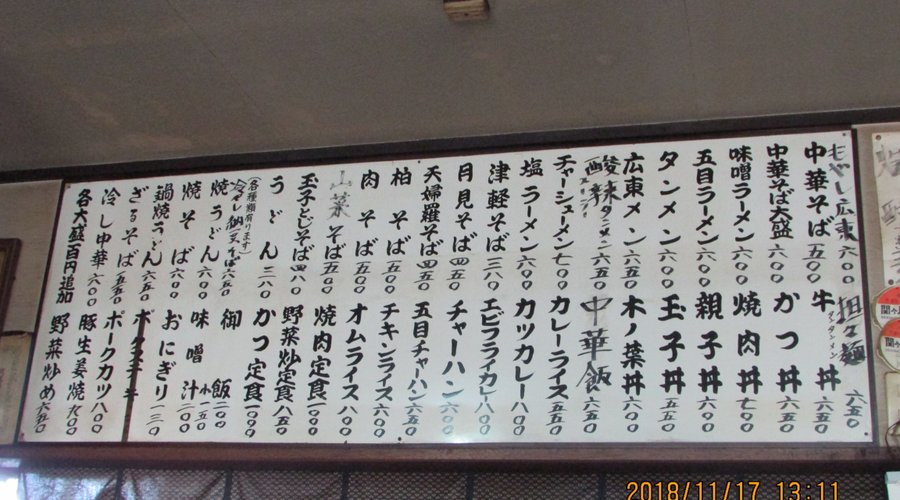 もやし広東 六〇〇
中華そば 五〇〇
中華そば大盛 六〇〇
味噌ラーメン 六〇〇
五目ラーメン 六〇〇
タンメン 六〇〇
広東メン 六五〇
酸辣タンメン 六五〇
チャーシューメン 七〇〇
塩ラーメン 六〇〇
津軽そば 三八〇
月見そば 四五〇
天婦羅そば 四五〇
柏そば 五五〇
肉そば 五〇〇
山菜そば 五五〇
玉子とじそば 四八〇
うどん 三八〇
(各種類有ります)
冷やし納豆そば 六五〇
焼うどん 六〇〇
焼そば 六〇〇
鍋焼うどん 六五〇
ざるそば 五五〇
冷し中華 六〇〇
各大盛百円追加
担々麺 六五〇
タンタンメン
牛丼 六五〇
かつ丼 六五〇
焼肉丼 七〇〇
親子丼 六〇〇
玉子丼 五五〇
木ノ葉丼 六〇〇
中華飯 六五〇
カレーライス 五五〇
カツカレー 八〇〇
エビフライカレー 八〇〇
チャーハン 六〇〇
五目チャーハン 六五〇
チキンライス 六〇〇
オムライス 八〇〇
焼肉定食 一〇〇〇
野菜炒定食 八五〇
かつ定食 一〇〇〇
御飯 二〇〇
味噌汁 二〇〇
小 五〇
おにぎり 一三〇
ポークカツ 八〇〇
豚生姜焼 九〇〇
野菜炒め 六五〇
2018/11/17 13:11